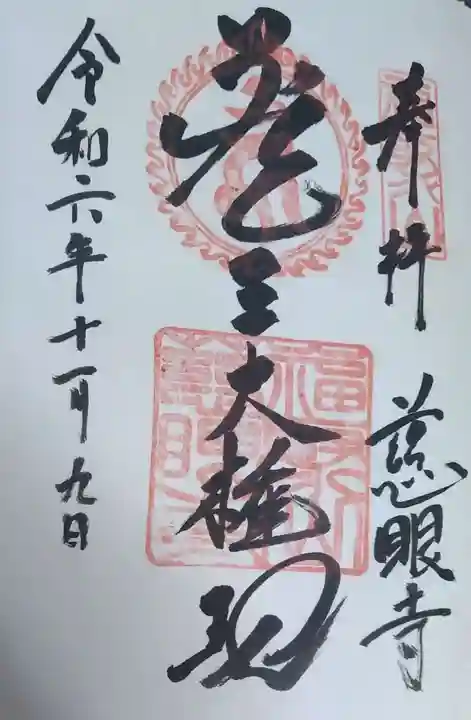 奉拝
慈眼寺
蔵王大権現
令和六年十一月九日